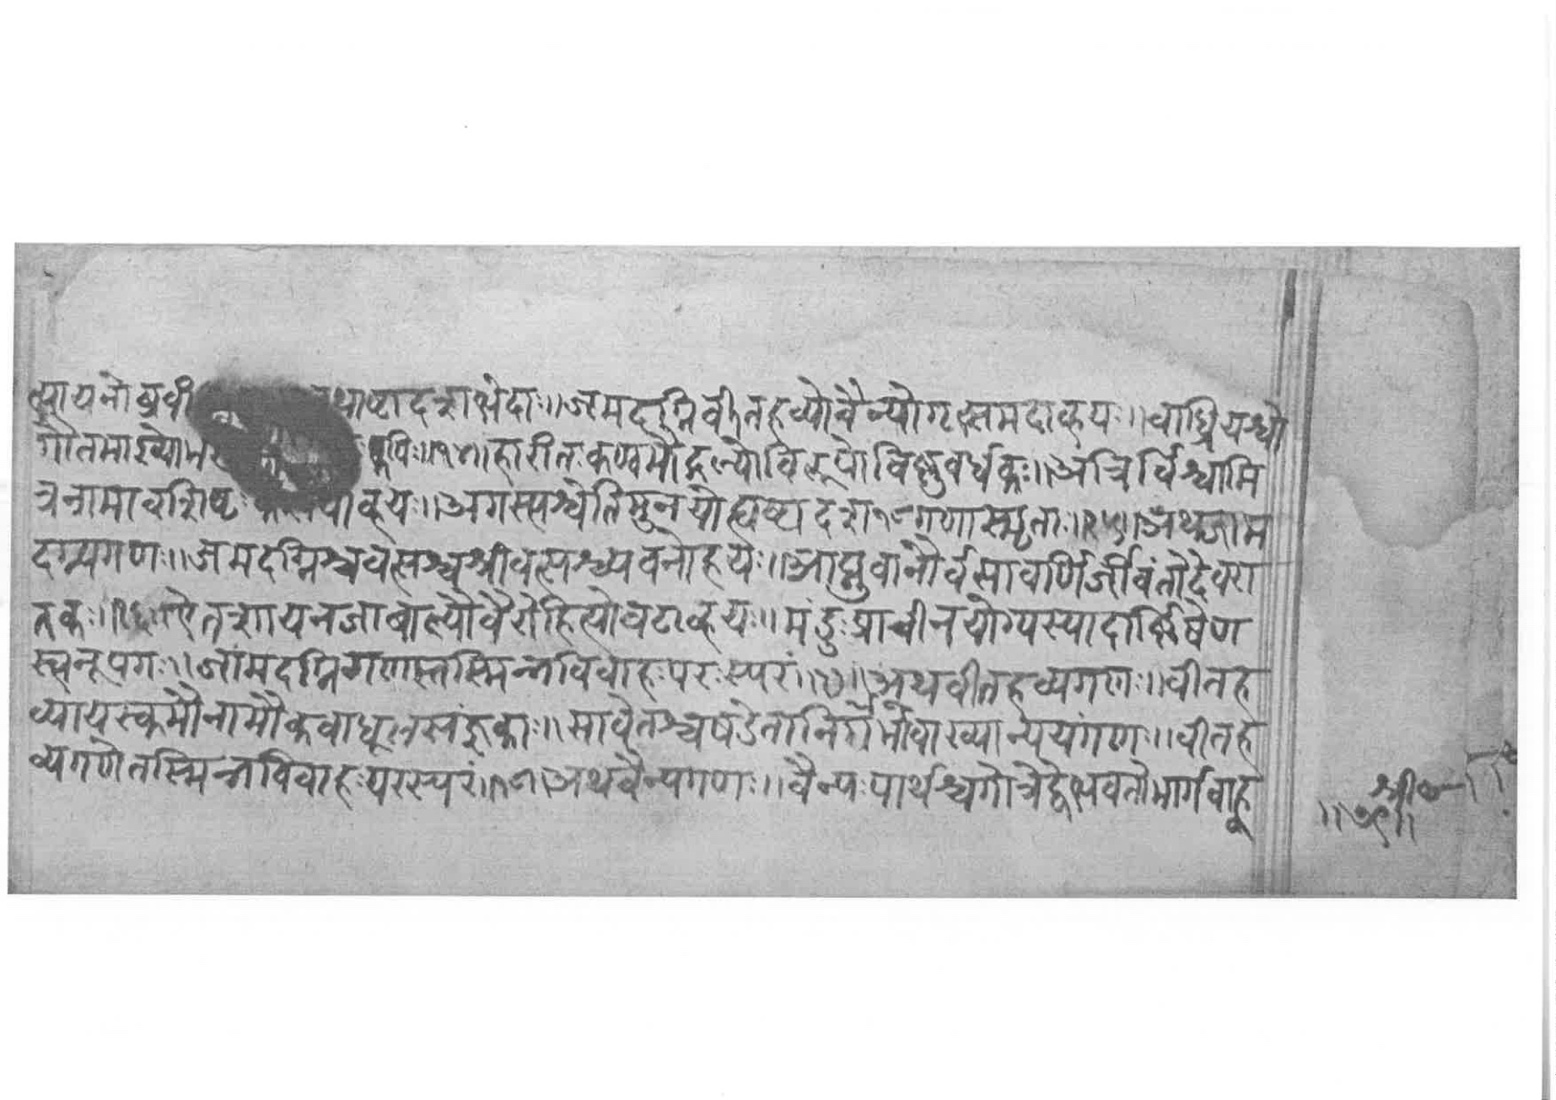 त्यायनो ब्रवी थाष्टादशभेदाः॥जमदग्निर्वीतहव्योवैन्योगृत्समदाह्वयः॥वाध्रियश्वो
गौतमाख्यो कपिः॥१४॥हारीतःकण्वमौद्गल्योविरूपोविष्णुवर्धकः॥अत्रिर्विश्वामि
त्रनामावशिष्टः पाह्वयः॥अगस्त्यश्चेतिमुनयोह्यष्टादश१८गणास्मृताः॥१५॥अथजाम
दग्न्यगणः॥जमदग्निश्चवत्सश्चश्रीवत्सश्च्यवनोहयः॥आप्नुवानौर्वसावर्णिर्जीवंतोदेवरा
तकः॥१६॥ऐतशायनजाबाल्यौवैरोहित्योवटाह्वयः॥मंडुःप्राचीनयोग्यस्यादार्ष्णिषेण
स्त्वनूपगः॥जामदग्निगणास्तस्मिन्नविवाहःपरःस्परं॥१७॥अथवीतहव्यगणः॥वीतह
व्यायस्कमौनामौकवाधूलसंज्ञकाः॥सावेतश्चषडेतानिर्गर्भावाख्यान्ययंगणः॥वीतह
व्यगणेतस्मिन्नविवाहःपरस्परं॥१८॥अथवैन्यगणः॥वैन्यःपार्थश्चगोत्रेद्वेभवतोभार्गवाह्व
श्री
॥७९॥